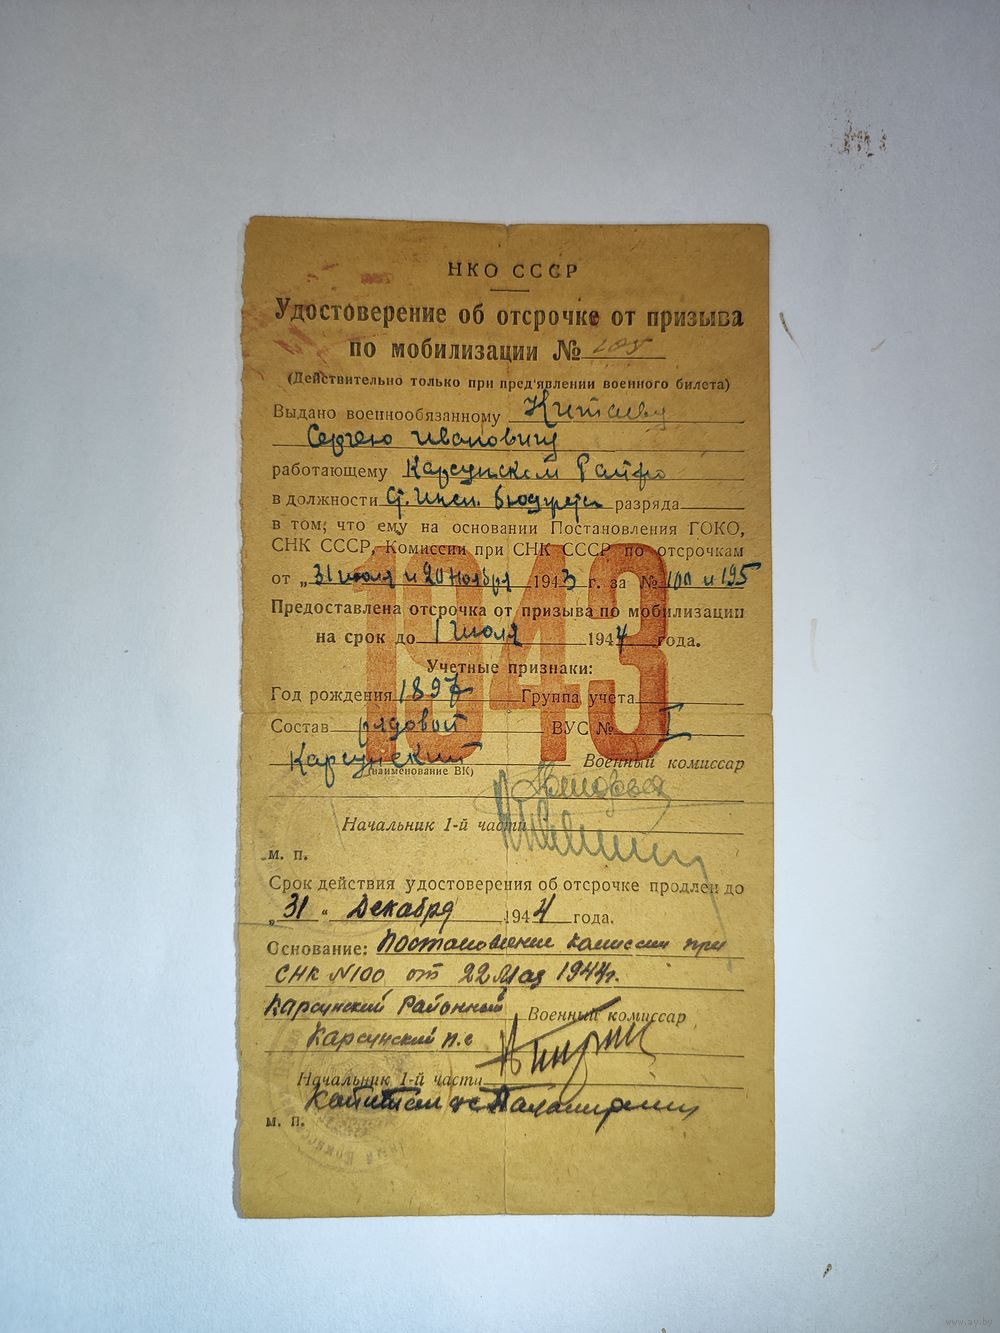 НКО СССР
Удостоверение об отсрочке от призыва
по мобилизации № 205
(Действительно только при пред'явлении военного билета)
Выдано военнообязанному Китаеву
Сергею Ивановичу
работающему Карсунском Райфо
в должности Ст. Инсп. Бюджета разряда
в том, что ему на основании Постановления ГОКО,
СНК СССР, Комиссии при СНК СССР по отсрочкам
от „31 июля и 20 ноября 1943 г. за № 100 и 195
Предоставлена отсрочка от призыва по мобилизации
на срок до 1 июля 1944 года.
1943
Учетные признаки:
Год рождения 1897 Группа учета
Состав рядовой ВУС № I
Карсунский Военный комиссар
(наименование ВК)
Начальник 1-й части
м. п.
Срок действия удостоверения об отсрочке продлен до
„31“ Декабря 1944 года.
Основание: Постановление комиссии при
СНК №100 от 22 Мая 1944г.
Карсунский Районный Военный комиссар
Карсунский п.с
Начальник 1-й части
Капитан
м. п.
www.ay.by